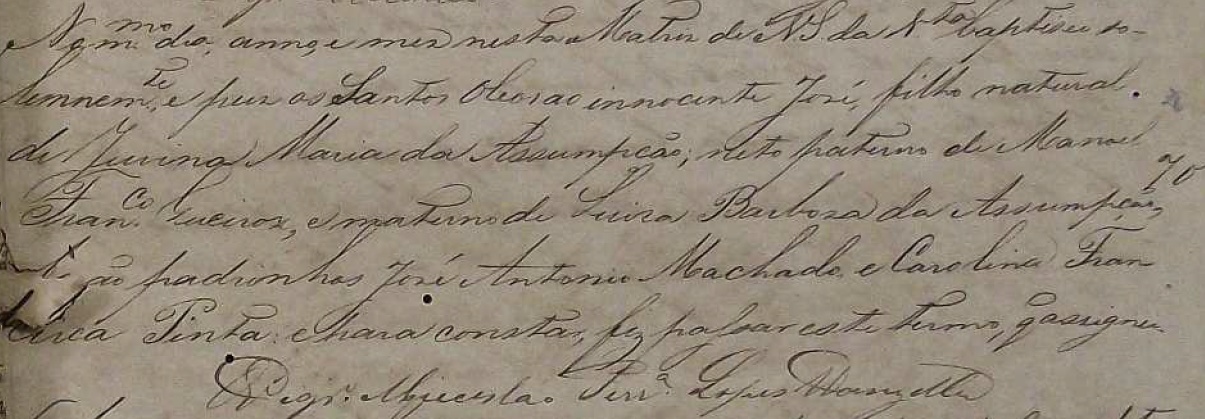 No m.mo dia, anno, e mez nesta Matriz de N S da N.ta baptisei so-
lemnem.te, e puz os Santos Oleos ao innocente José, filho natural
de Juvina Maria da Assumpção; neto paterno de Manoel
Fran.co Queiroz, e materno de Luiza Barboza da Assumpção,
ão padrinhos José Antonio Machado e Carolina Fran
cisca Pinta: e para constar, fiz passar este termo, q assignei.
O Regr. Ferr.a Lopes
70